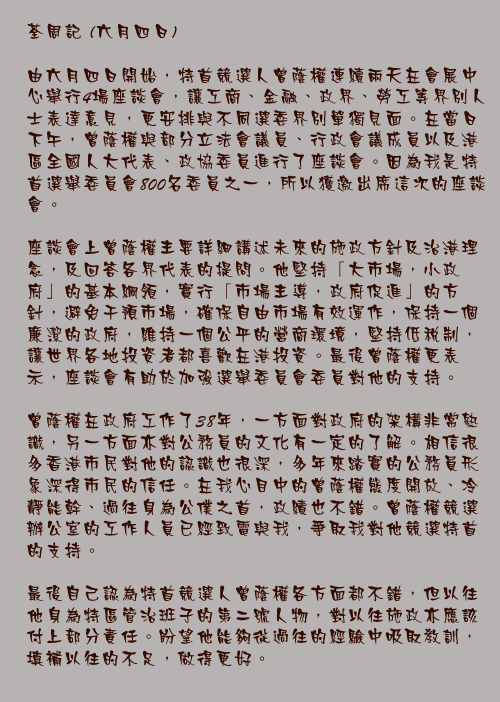 荃問記 (六月四日)
由六月四日開始，特首競選人曾蔭權連續兩天在會展中
心舉行4場座談會，讓工商、金融、政界、勞工等界別人
士表達意見，更安排與不同選委界別單獨見面。在當日
下午，曾蔭權與部分立法會議員、行政會議成員以及港
區全國人大代表、政協委員進行了座談會。因為我是特
首選舉委員會800名委員之一，所以獲邀出席這次的座談
會。
座談會上曾蔭權主要詳細講述未來的施政方針及治港理
念，及回答各界代表的提問。他堅持「大市場，小政
府」的基本綱領，實行「市場主導，政府促進」的方
針，避免干預市場，確保自由市場有效運作，保持一個
廉潔的政府，維持一個公平的營商環境，堅持低稅制，
讓世界各地投資者都喜歡在港投資。最後曾蔭權更表
示，座談會有助於加強選舉委員會委員對他的支持。
曾蔭權在政府工作了38年，一方面對政府的架構非常熟
識，另一方面亦對公務員的文化有一定的了解。相信很
多香港市民對他的認識也很深，多年來踏實的公務員形
象深得市民的信任。在我心目中的曾蔭權態度開放、冷
靜能幹、過往身為公僕之首，政績也不錯。曾蔭權競選
辦公室的工作人員已經致電與我，爭取我對他競選特首
的支持。
最後自己認為特首競選人曾蔭權各方面都不錯，但以往
他身為特區管治班子的第二號人物，對以往施政亦應該
付上部分責任。盼望他能夠從過往的經驗中吸取教訓，
填補以往的不足，做得更好。